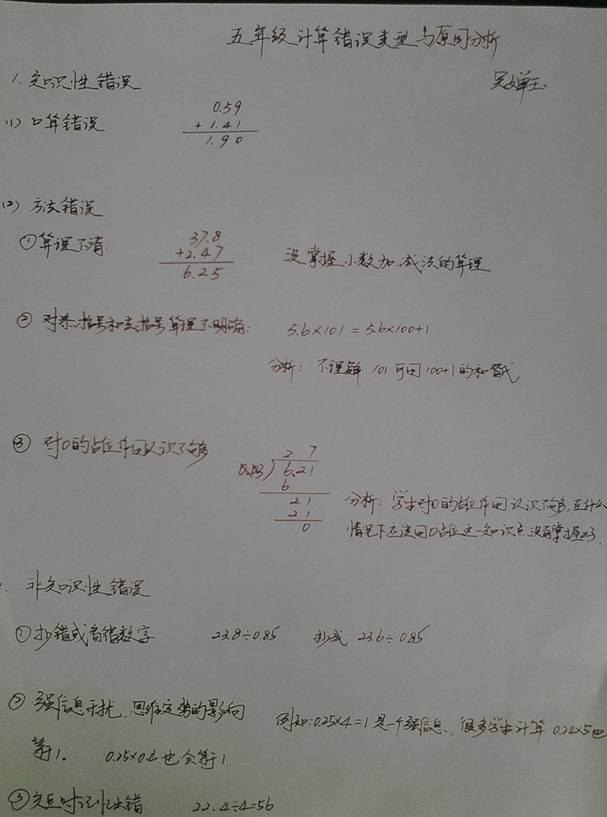 五年级计算错误类型与原因分析
1.知识性错误
(1)口算错误
0.59
+ 1.41
1.90
(2)方法错误
①算理不清:
37.8
+2.47
6.25
没掌握小数加.减法的算理
② 对添括号和去括号算理不明确:
5.6×101 = 5.6×100+1
分析: 不理解 101可用100+1的和替代
③ 对0的占位作用认识不够
2 7
0.03) 6.21
6
21
21
0
分析: 学生对0的占位作用认识不够,在什么
情况下应该用0占位这一知识点没有掌握好.
非知识性错误
①抄错或看错数字
23.8÷0.85 抄成 23.6÷0.85
② 强信息干扰,思维定势的影响
例如:0.25×4=1是一个强信息,很多学生计算 0.24×5也
等于1. 0.25×0.4也会等于1
③交互时记忆出错 22.4÷4=56